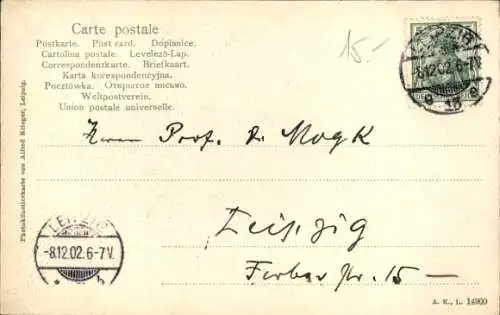 Carte postale
Postkarte. Post card. Dopisnice.
Cartolina postale. Levelező-Lap.
Correspondenzkarte. Briefkaart.
Karta korespondencyjna.
Pocztówka. Открытое письмо.
Weltpostverein.
Union postale universelle.
15 -
LEIPZIG
8.12.02.6-7V.
9 15 e
Herrn Prof. D. Mogk
Leipzig
Färberstr. 15 —
LEIPZIG
-8.12.02.6-7V.
* b
Photoküstlerkarte von Alfred Krieger, Leipzig.
A. K., L. 14909